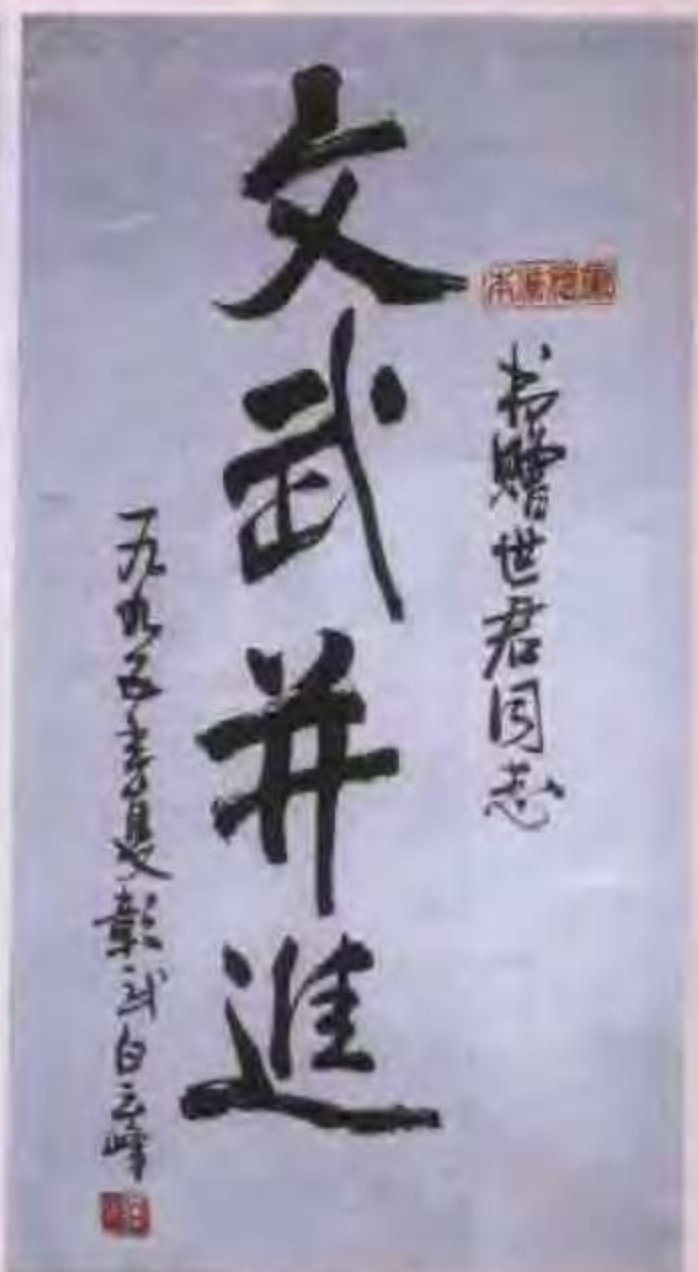 书赠世君同志
文武并進
一九九五年夏彰武白云峰